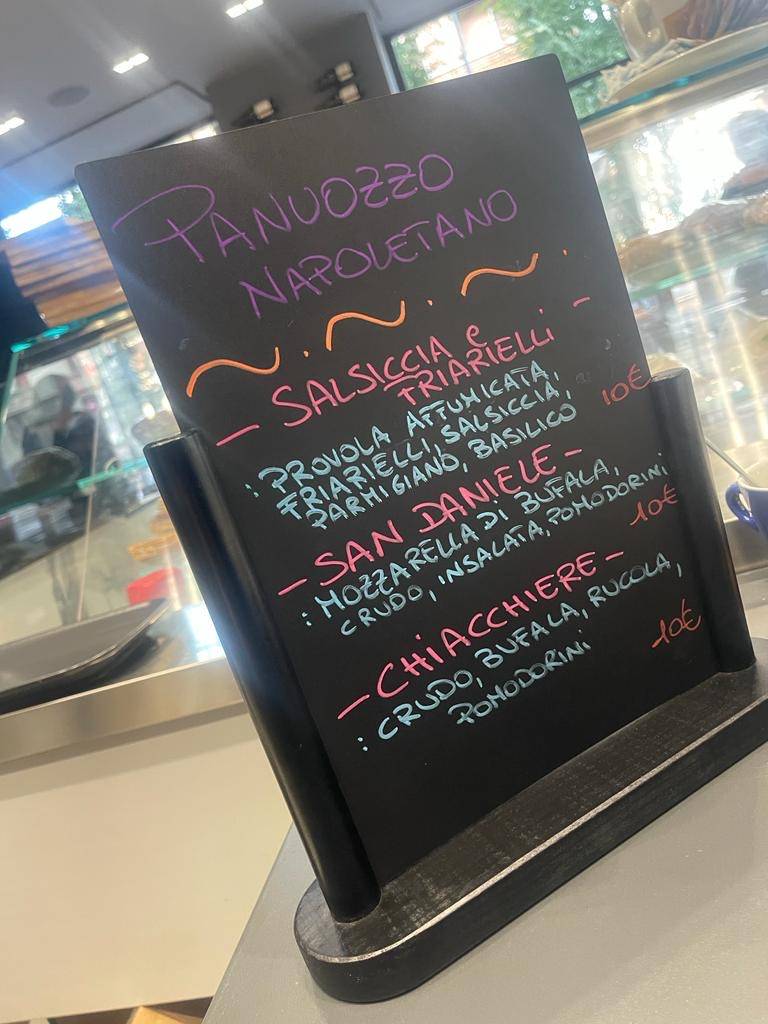 PANUOZZO
NAPOLETANO
- SALSICCIA e
TRIARIELLI -
: PROVOLA AFFUMICATA,
FRIARIELLI, SALSICCIA,
PARMIGIANO, BASILICO 10€
- SAN DANIELE -
: MOZZARELLA DI BUFALA,
CRUDO, INSALATA, POMODORINI
10€
- CHIACCHIERE -
: CRUDO, BUFALA, RUCOLA,
POMODORINI 10€